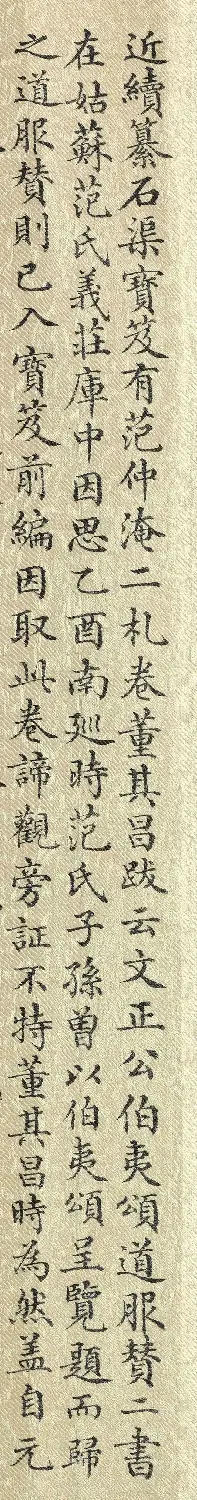 近續纂石渠寶笈有范仲淹二札卷董其昌跋云文正公伯夷頌道服贊二書
在姑蘇范氏義莊庫中因思乙酉南廵時范氏子孫曾以伯夷頌呈覽題而歸
之道服贊則已入寶笈前編因取此卷諦觀旁証不特董其昌時為然盖自元